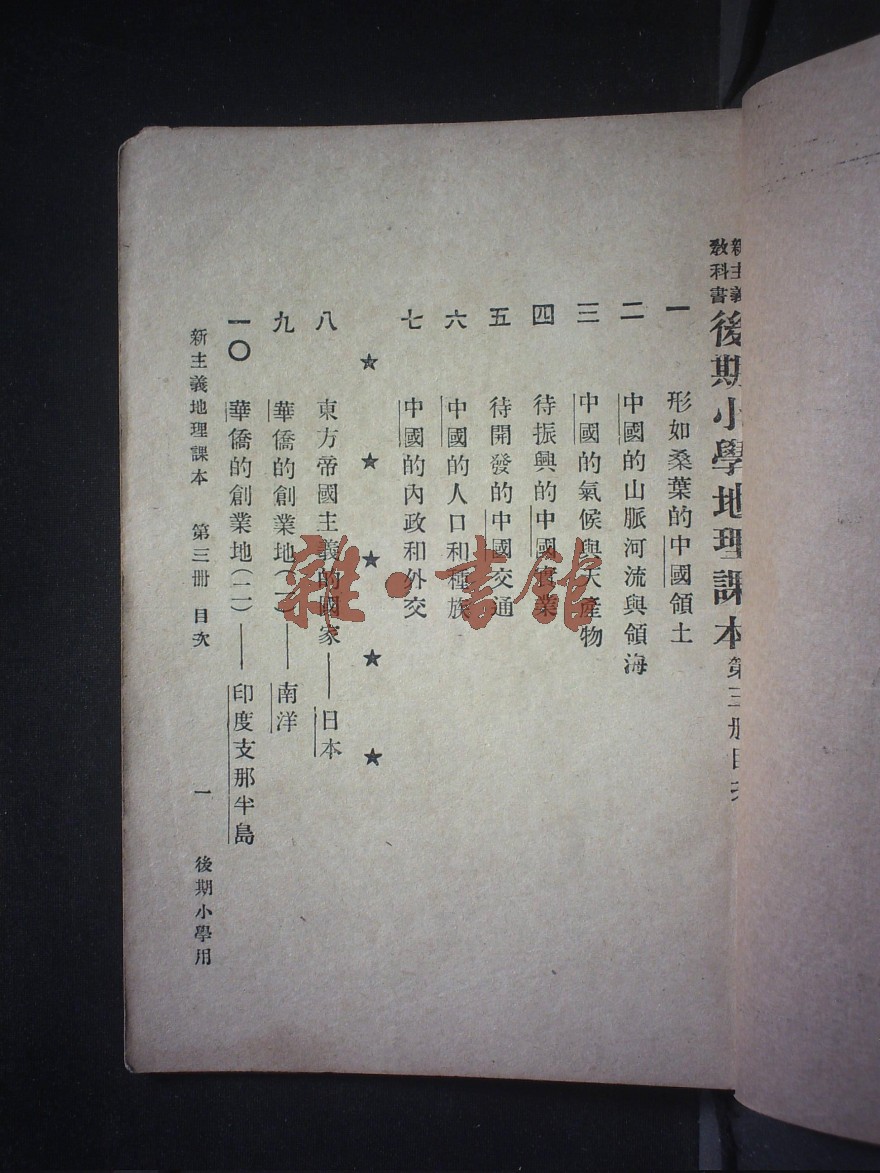 新主義
教科書
後期小學地理課本 第三册目次
一 形如桑葉的中國領土
二 中國的山脈河流與領海
三 中國的氣候與天產物
四 待振興的中國實業
五 待開發的中國交通
六 中國的人口和種族
七 中國的內政和外交
★ ★ ★ ★ ★
八 東方帝國主義的國家——日本
九 華僑的創業地(一)——南洋
一〇 華僑的創業地(二)——印度支那半島
新主義地理課本 第三册 目次 一 後期小學用
雜·書館